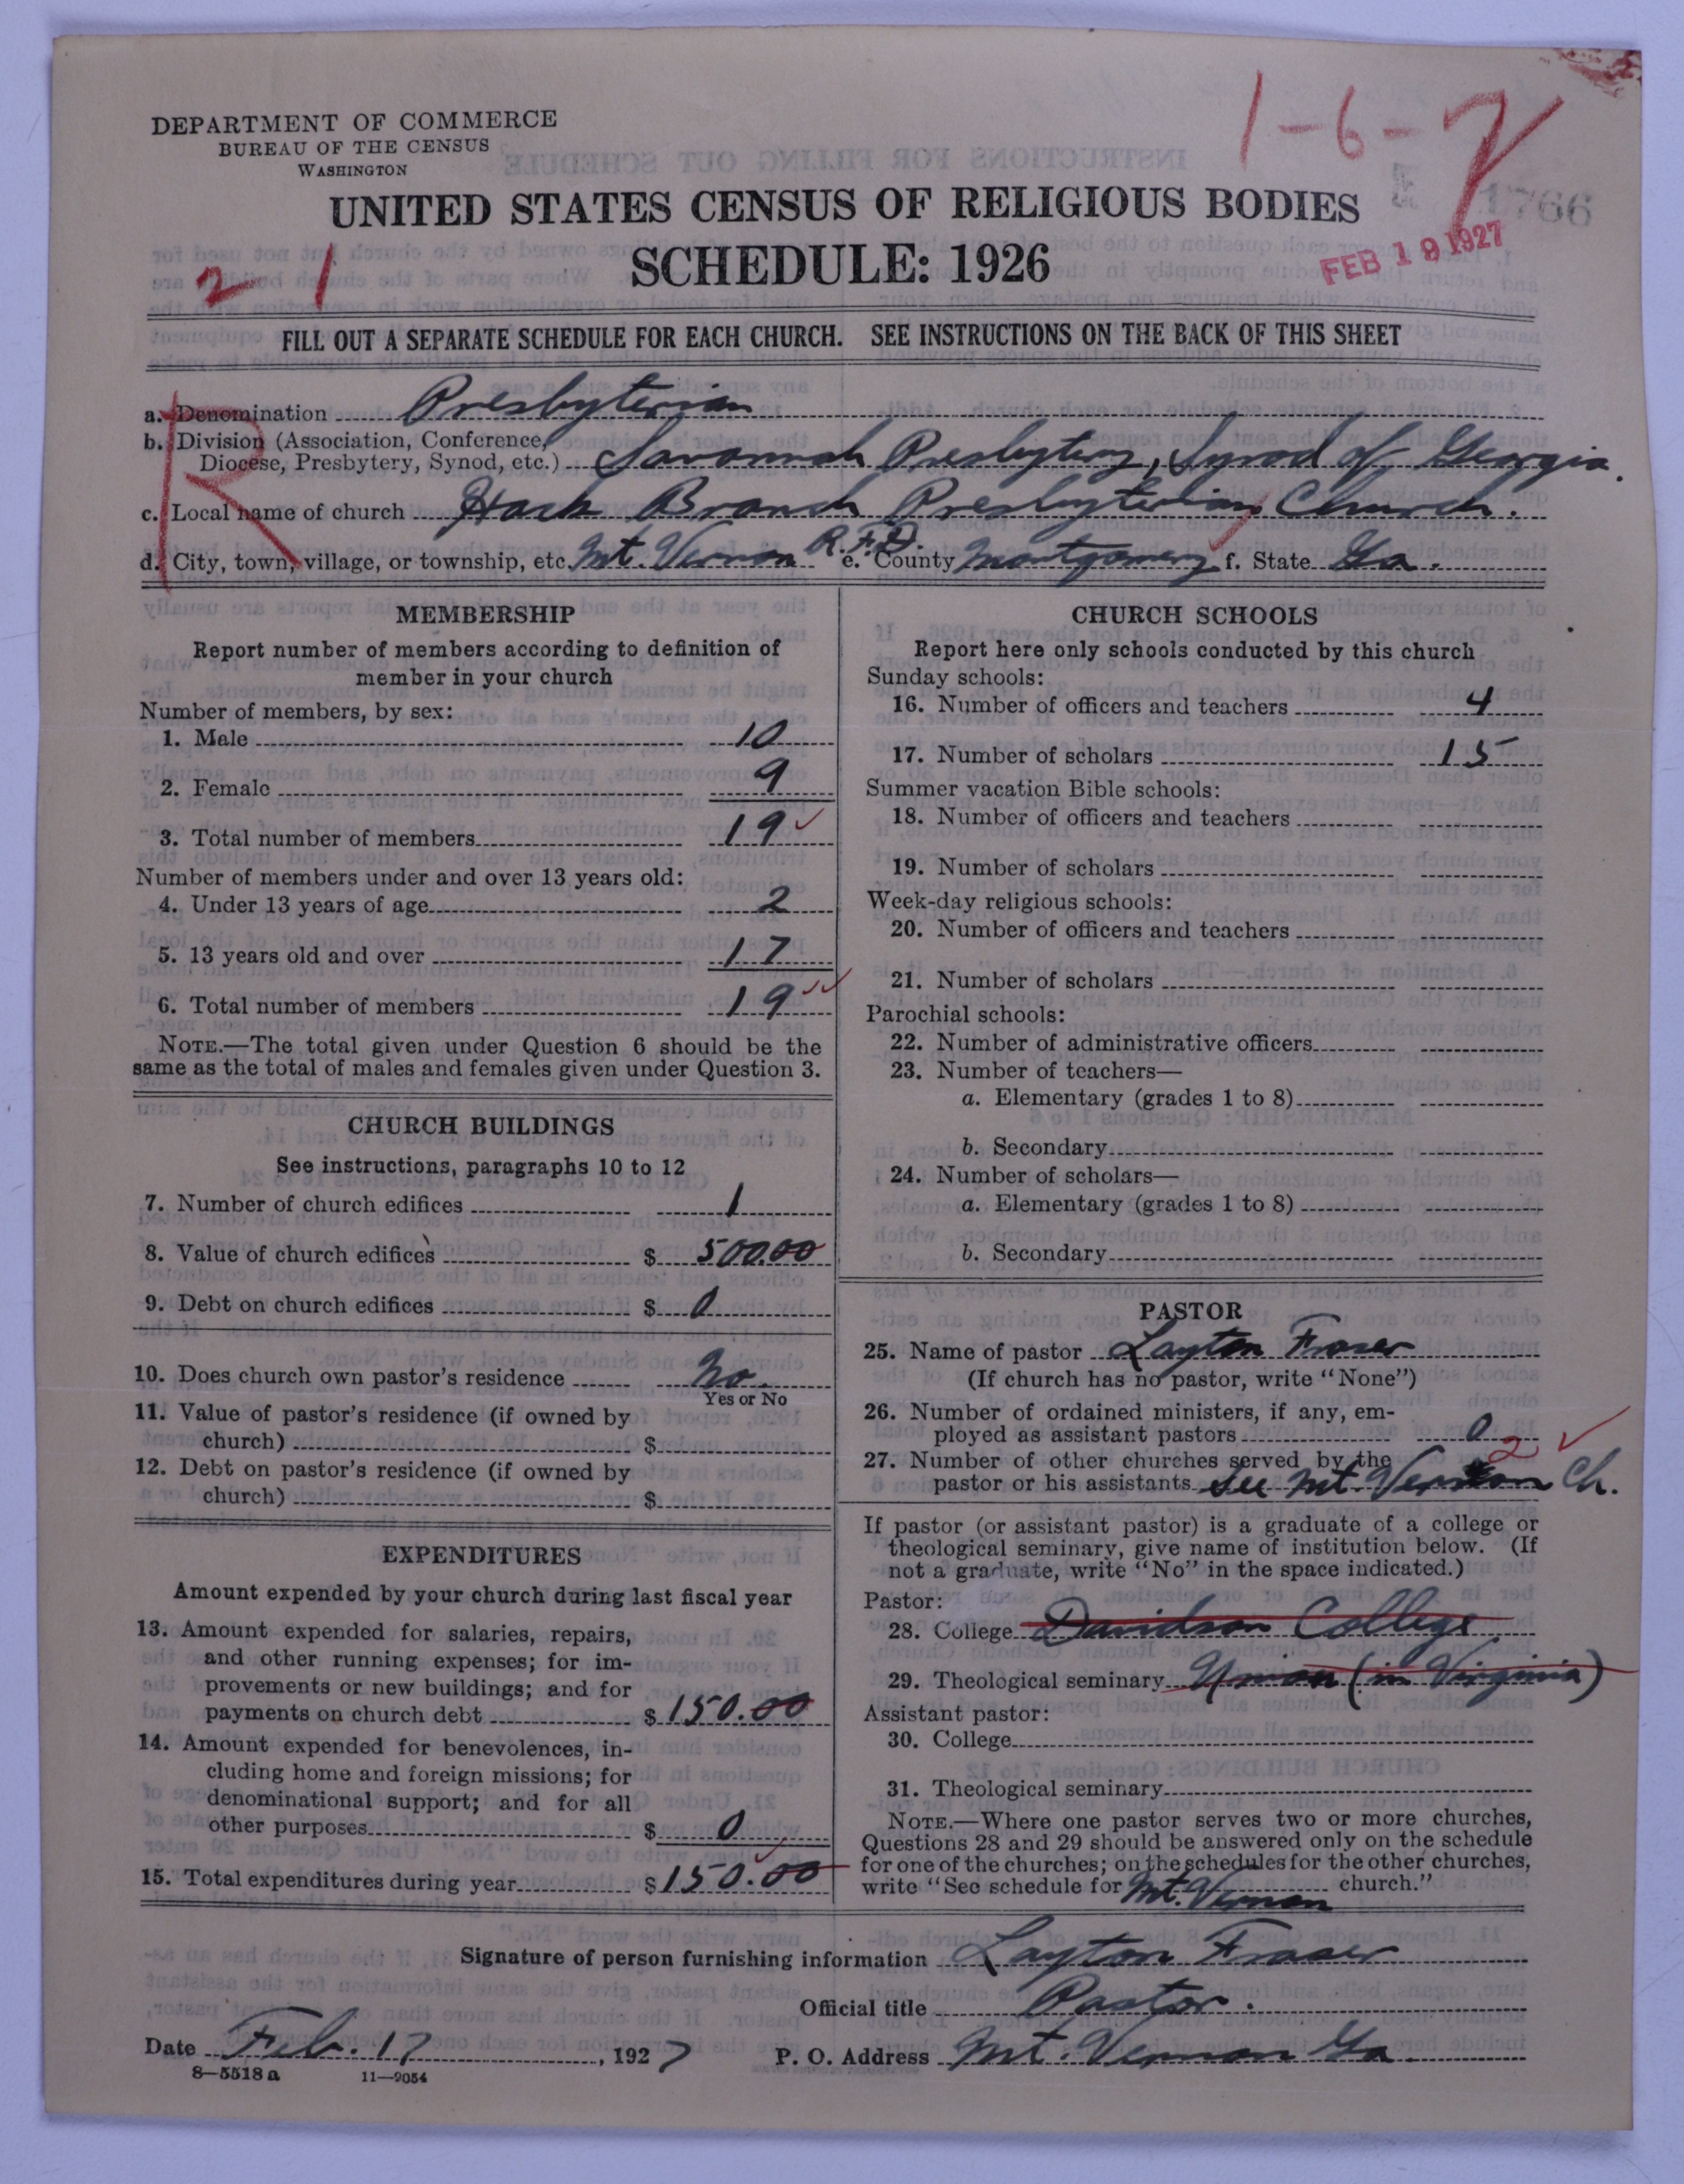 DEPARTMENT OF COMMERCE
BUREAU OF THE CENSUS
WASHINGTON
1-6-
1766
UNITED STATES CENSUS OF RELIGIOUS BODIES
SCHEDULE: 1926
FEB 19 1927
2 1
FILL OUT A SEPARATE SCHEDULE FOR EACH CHURCH. SEE INSTRUCTIONS ON THE BACK OF THIS SHEET
R
a. Denomination Presbyterian
b. Division (Association, Conference,
Diocese, Presbytery, Synod, etc.) Savannah Presbytery, Synod of Georgia.
c. Local name of church Hack Branch Presbyterian Church.
d. City, town, village, or township, etc. Mt. Vernon R.F.D. e. County Montgomery f. State Ga.
MEMBERSHIP
Report number of members according to definition of
member in your church
Number of members, by sex:
1. Male 10
2. Female 9
3. Total number of members 19
Number of members under and over 13 years old:
4. Under 13 years of age 2
5. 13 years old and over 17
6. Total number of members 19
NOTE.—The total given under Question 6 should be the
same as the total of males and females given under Question 3.
CHURCH BUILDINGS
See instructions, paragraphs 10 to 12
7. Number of church edifices 1
8. Value of church edifices $ 500.00
9. Debt on church edifices $ 0
10. Does church own pastor's residence No.
Yes or No
11. Value of pastor's residence (if owned by
church) $
12. Debt on pastor's residence (if owned by
church) $
EXPENDITURES
Amount expended by your church during last fiscal year
13. Amount expended for salaries, repairs,
and other running expenses; for im-
provements or new buildings; and for
payments on church debt $ 150.00
14. Amount expended for benevolences, in-
cluding home and foreign missions; for
denominational support; and for all
other purposes $ 0
15. Total expenditures during year $ 150.00
CHURCH SCHOOLS
Report here only schools conducted by this church
Sunday schools:
16. Number of officers and teachers 4
17. Number of scholars 15
Summer vacation Bible schools:
18. Number of officers and teachers
19. Number of scholars
Week-day religious schools:
20. Number of officers and teachers
21. Number of scholars
Parochial schools:
22. Number of administrative officers
23. Number of teachers—
a. Elementary (grades 1 to 8)
b. Secondary
24. Number of scholars—
a. Elementary (grades 1 to 8)
b. Secondary
PASTOR
25. Name of pastor Layton Fraser
(If church has no pastor, write "None")
26. Number of ordained ministers, if any, em-
ployed as assistant pastors 0
27. Number of other churches served by the 2
pastor or his assistants See Mt. Vernon Ch.
If pastor (or assistant pastor) is a graduate of a college or
theological seminary, give name of institution below. (If
not a graduate, write "No" in the space indicated.)
Pastor:
28. College Davidson College
29. Theological seminary Union (in Virginia)
Assistant pastor:
30. College
31. Theological seminary
NOTE.—Where one pastor serves two or more churches,
Questions 28 and 29 should be answered only on the schedule
for one of the churches; on the schedules for the other churches,
write "See schedule for Mt. Vernon church."
Signature of person furnishing information Layton Fraser
Official title Pastor.
Date Feb. 17, 1927 P. O. Address Mt. Vernon Ga.
8—5518a 11—9054